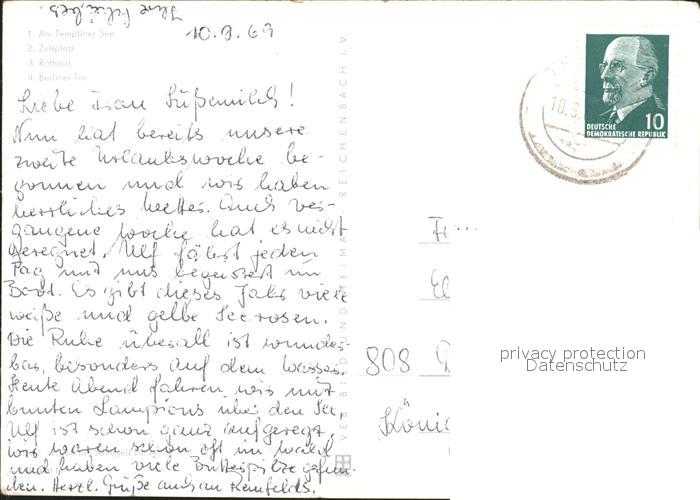 Ihre
10.9.69
1. Am Templiner See
2. Zeltplatz
3. Rathaus
4. Berliner Tor
Liebe Frau Süßemilch!
Nun hat bereits unsere
zweite Urlaubswoche be-
gonnen und wir haben
herrliches Wetter. Auch ver-
gangene Woche hat es nicht
geregnet. Ulf fährt jeden
Tag mit uns begeistert im
Boot. Es gibt dieses Jahr viele
weiße und gelbe Seerosen.
Die Ruhe überall ist wunder-
bar, besonders auf dem Wasser.
Heute Abend fahren wir mit
bunten Lampions über den See.
Ulf ist schon ganz aufgeregt,
wir waren schon oft im Wald
und haben viele Butterpilze gefun-
den. Herzl. Grüße auch an Reinfelds.
VEB BILD UND HEIMAT REICHENBACH I. V.
10.9.
DEUTSCHE
DEMOKRATISCHE REPUBLIK
10
Fr...
808
König
privacy protection
Datenschutz